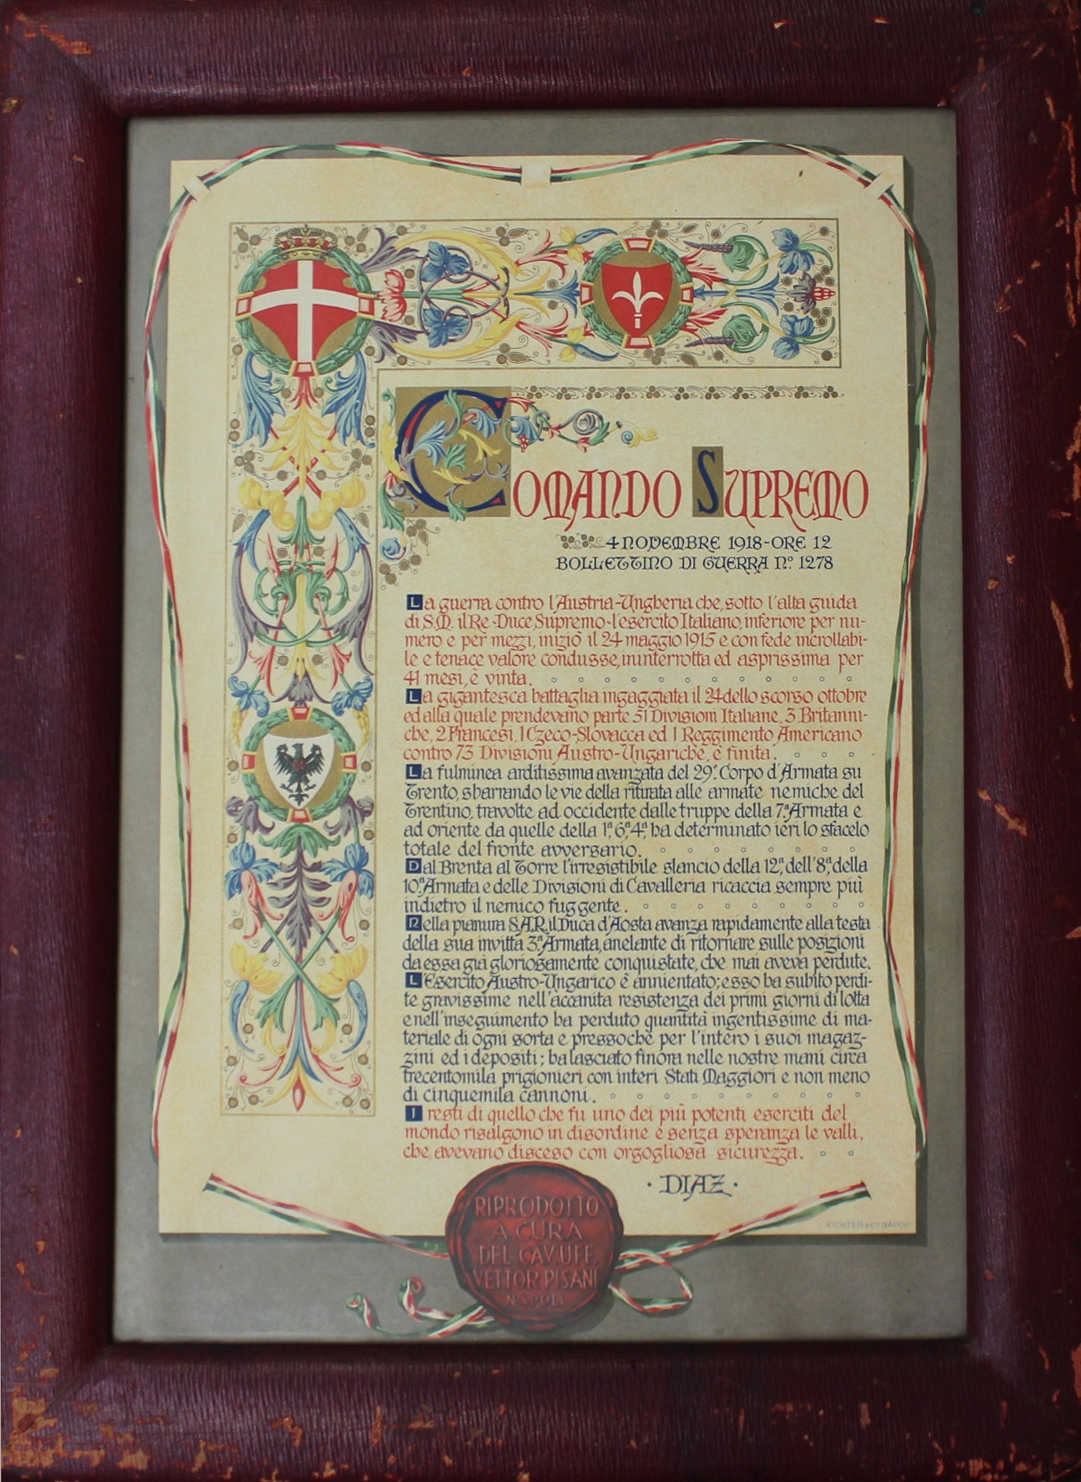 COMANDO SUPREMO
4 NOVEMBRE 1918-ORE 12
BOLLETTINO DI GUERRA Nº. 1278
La guerra contro l'Austria-Ungheria che, sotto l'alta guida
di S.M. il Re-Duce Supremo-l'esercito Italiano, inferiore per nu-
mero e per mezzi, iniziò il 24 maggio 1915 e con fede incrollabi-
le e tenace valore condusse, ininterrotta ed asprissima per
41 mesi, è vinta.
La gigantesca battaglia ingaggiata il 24 dello scorso ottobre
ed alla quale prendevano parte 51 Divisioni Italiane, 3 Britanni-
che, 2 Francesi, 1 Czeco-Slovacca ed 1 Reggimento Americano
contro 73 Divisioni Austro-Ungariche, è finita.
La fulminea arditissima avanzata del 29º. Corpo d'Armata su
Trento, sbarrando le vie della ritirata alle armate nemiche del
Trentino, travolte ad occidente dalle truppe della 7ª. Armata e
ad oriente da quelle della 1ª, 6ª, 4ª, ha determinato ieri lo sfacelo
totale del fronte avversario.
Dal Brenta al Torre l'irresistibile slancio della 12ª, dell'8ª, della
10ª. Armata e delle Divisioni di Cavalleria ricaccia sempre più
indietro il nemico fuggente.
Nella pianura S.A.R. il Duca d'Aosta avanza rapidamente alla testa
della sua invitta 3ª. Armata, anelante di ritornare sulle posizioni
da essa già gloriosamente conquistate, che mai aveva perdute.
L'Esercito Austro-Ungarico è annientato; esso ha subito perdi-
te gravissime nell'accanita resistenza dei primi giorni di lotta
e nell'inseguimento ha perduto quantità ingentissime di ma-
teriale di ogni sorta e pressochè per l'intero i suoi magaz-
zini ed i depositi; ha lasciato finora nelle nostre mani circa
trecentomila prigionieri con interi Stati Maggiori e non meno
di cinquemila cannoni.
I resti di quello che fu uno dei più potenti eserciti del
mondo risalgono in disordine e senza speranza le valli,
che avevano disceso con orgogliosa sicurezza.
·DIAZ·
RICHTER & Cº. NAPOLI
RIPRODOTTO
A CURA
DEL CAV. UFF.
VETTOR PISANI
NAPOLI